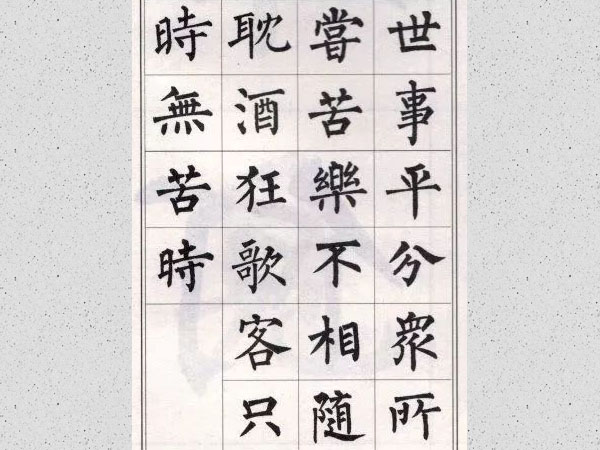 世事平分衆所
嘗苦樂不相隨
耽酒狂歌客只
時無苦時